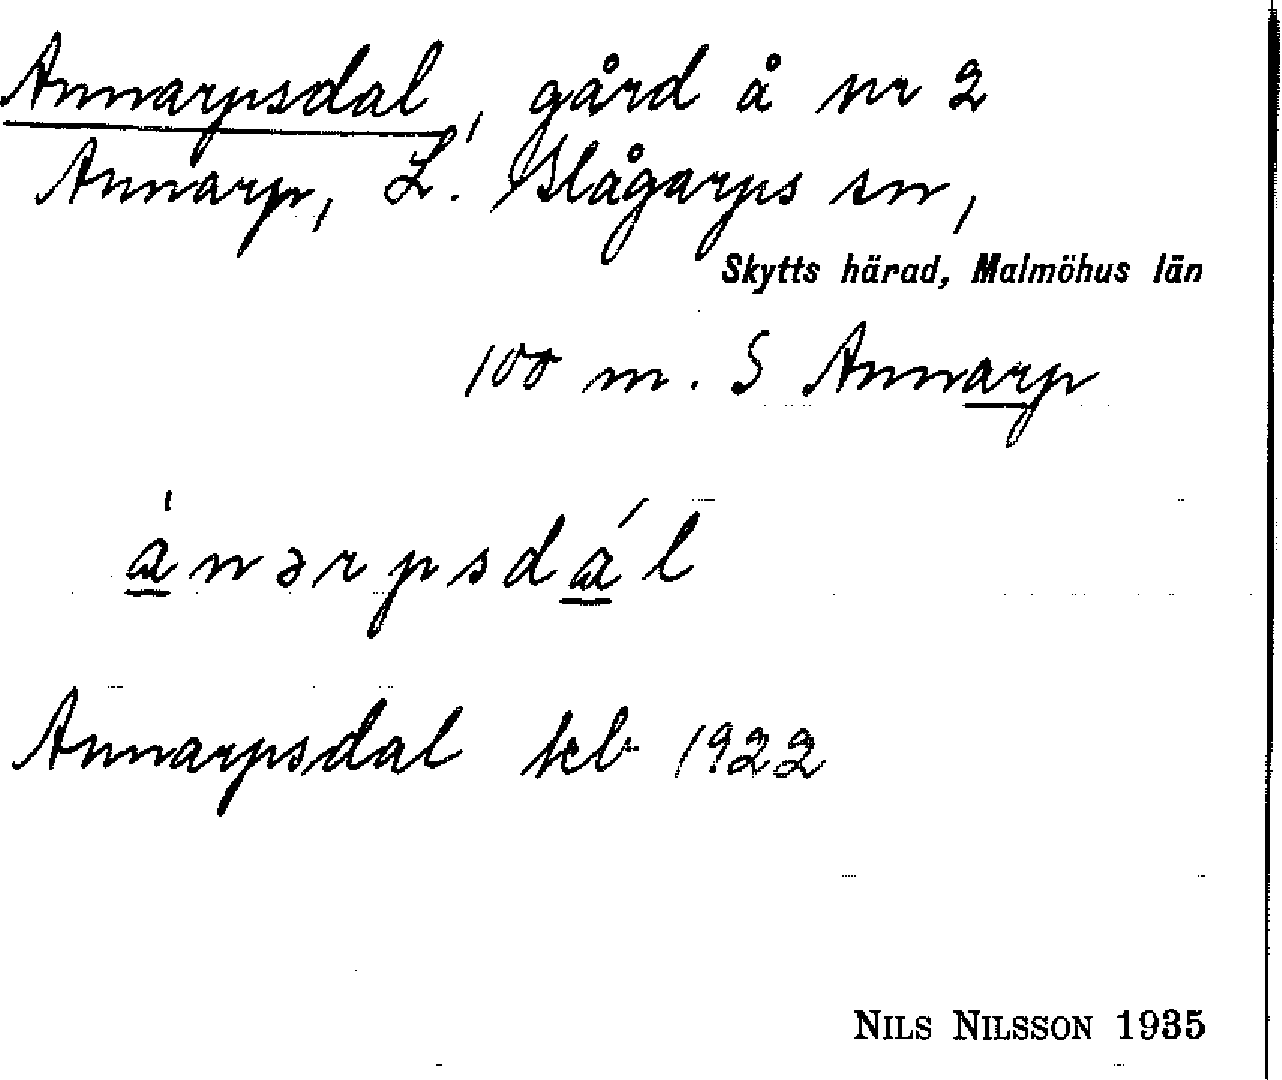 Annarpsdal, gård å nr 2
Annarp, L. Slågarps sn,
Skytts härad, Malmöhus län
100 m. S Annarp
ánərpsdál
Annarpsdal 1922
NILS NILSSON 1935